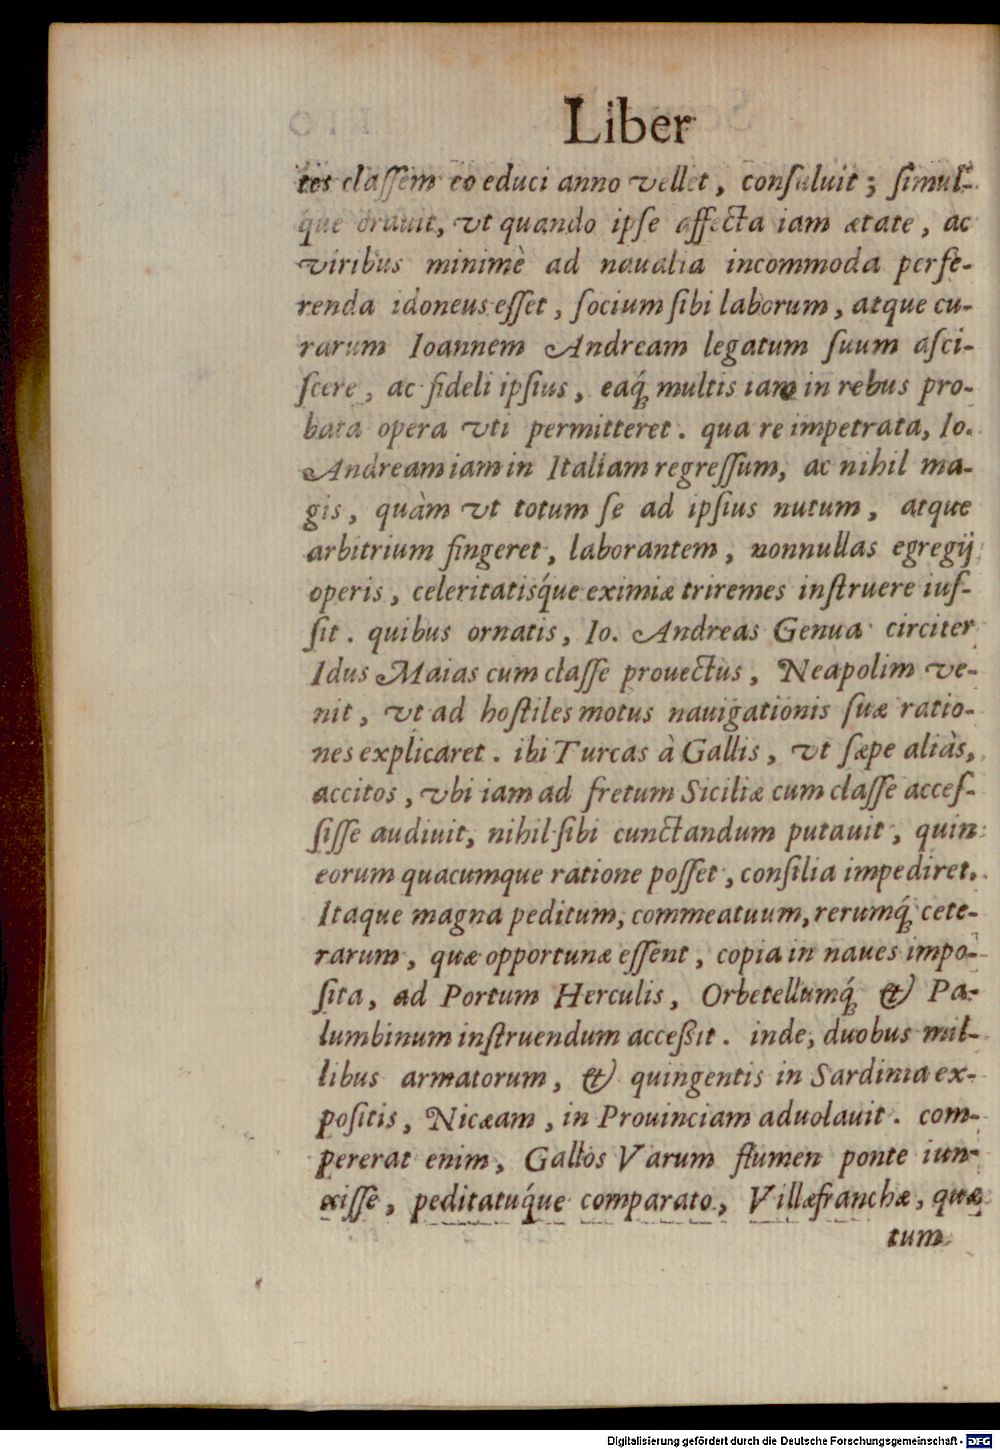 Liber
tes classem eo educi anno vellet, consuluit; simul-
que orauit, vt quando ipse affecta iam ætate, ac
viribus minimè ad naualia incommoda perfe-
renda idoneus esset, socium sibi laborum, atque cu-
rarum Ioannem Andream legatum suum asci-
scere, ac fideli ipsius, eaq́; multis iam in rebus pro-
bata opera vti permitteret. qua re impetrata, Io.
Andream iam in Italiam regressum, ac nihil ma-
gis, quàm vt totum se ad ipsius nutum, atque
arbitrium fingeret, laborantem, nonnullas egregij
operis, celeritatisq́ue eximiæ triremes instruere ius-
sit. quibus ornatis, Io. Andreas Genua circiter
Idus Maias cum classe prouectus, Neapolim ve-
nit, vt ad hostiles motus nauigationis suæ ratio-
nes explicaret. ibi Turcas à Gallis, vt sæpe aliàs,
accitos, vbi iam ad fretum Siciliæ cum classe acces-
sisse audiuit, nihil sibi cunctandum putauit, quin
eorum quacumque ratione posset, consilia impediret.
Itaque magna peditum, commeatuum, rerumq́; cete-
rarum, quæ opportunæ essent, copia in naues impo-
sita, ad Portum Herculis, Orbetellumq́; & Pa-
lumbinum instruendum accessit. inde, duobus mil-
libus armatorum, & quingentis in Sardinia ex-
positis, Nicæam, in Prouinciam aduolauit. com-
pererat enim, Gallos Varum flumen ponte iun-
xisse, peditatuq́ue comparato, Villæfranchæ, quæ
tum
Digitalisierung gefördert durch die Deutsche Forschungsgemeinschaft - DFG